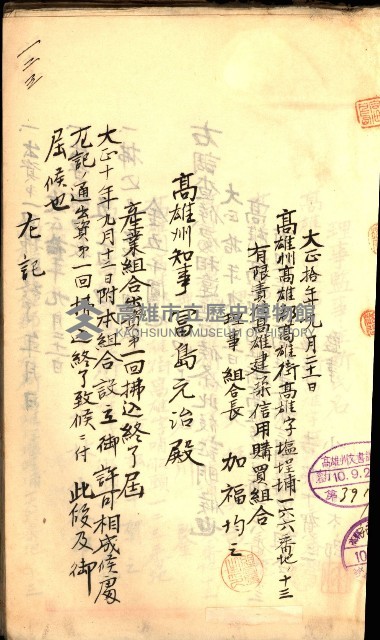 大正拾年九月二十一日
高雄州高雄郡高雄街高雄字塩埕埔一六六番地ノ十三
有限責任高雄建築信用購買組合
理事 組合長 加福均三
高雄州知事 富島元治殿
産業組合出資第一回拂込終了届
大正十年九月十二日附本組合設立御許可相成候處
左記ノ通出資第一回拂込終了致候ニ付 此段及御
届候也
左記
一二三
高雄市立歷史博物館
KAOHSIUNG MUSEUM OF HISTORY
高雄州文書課
10.9.2
第391